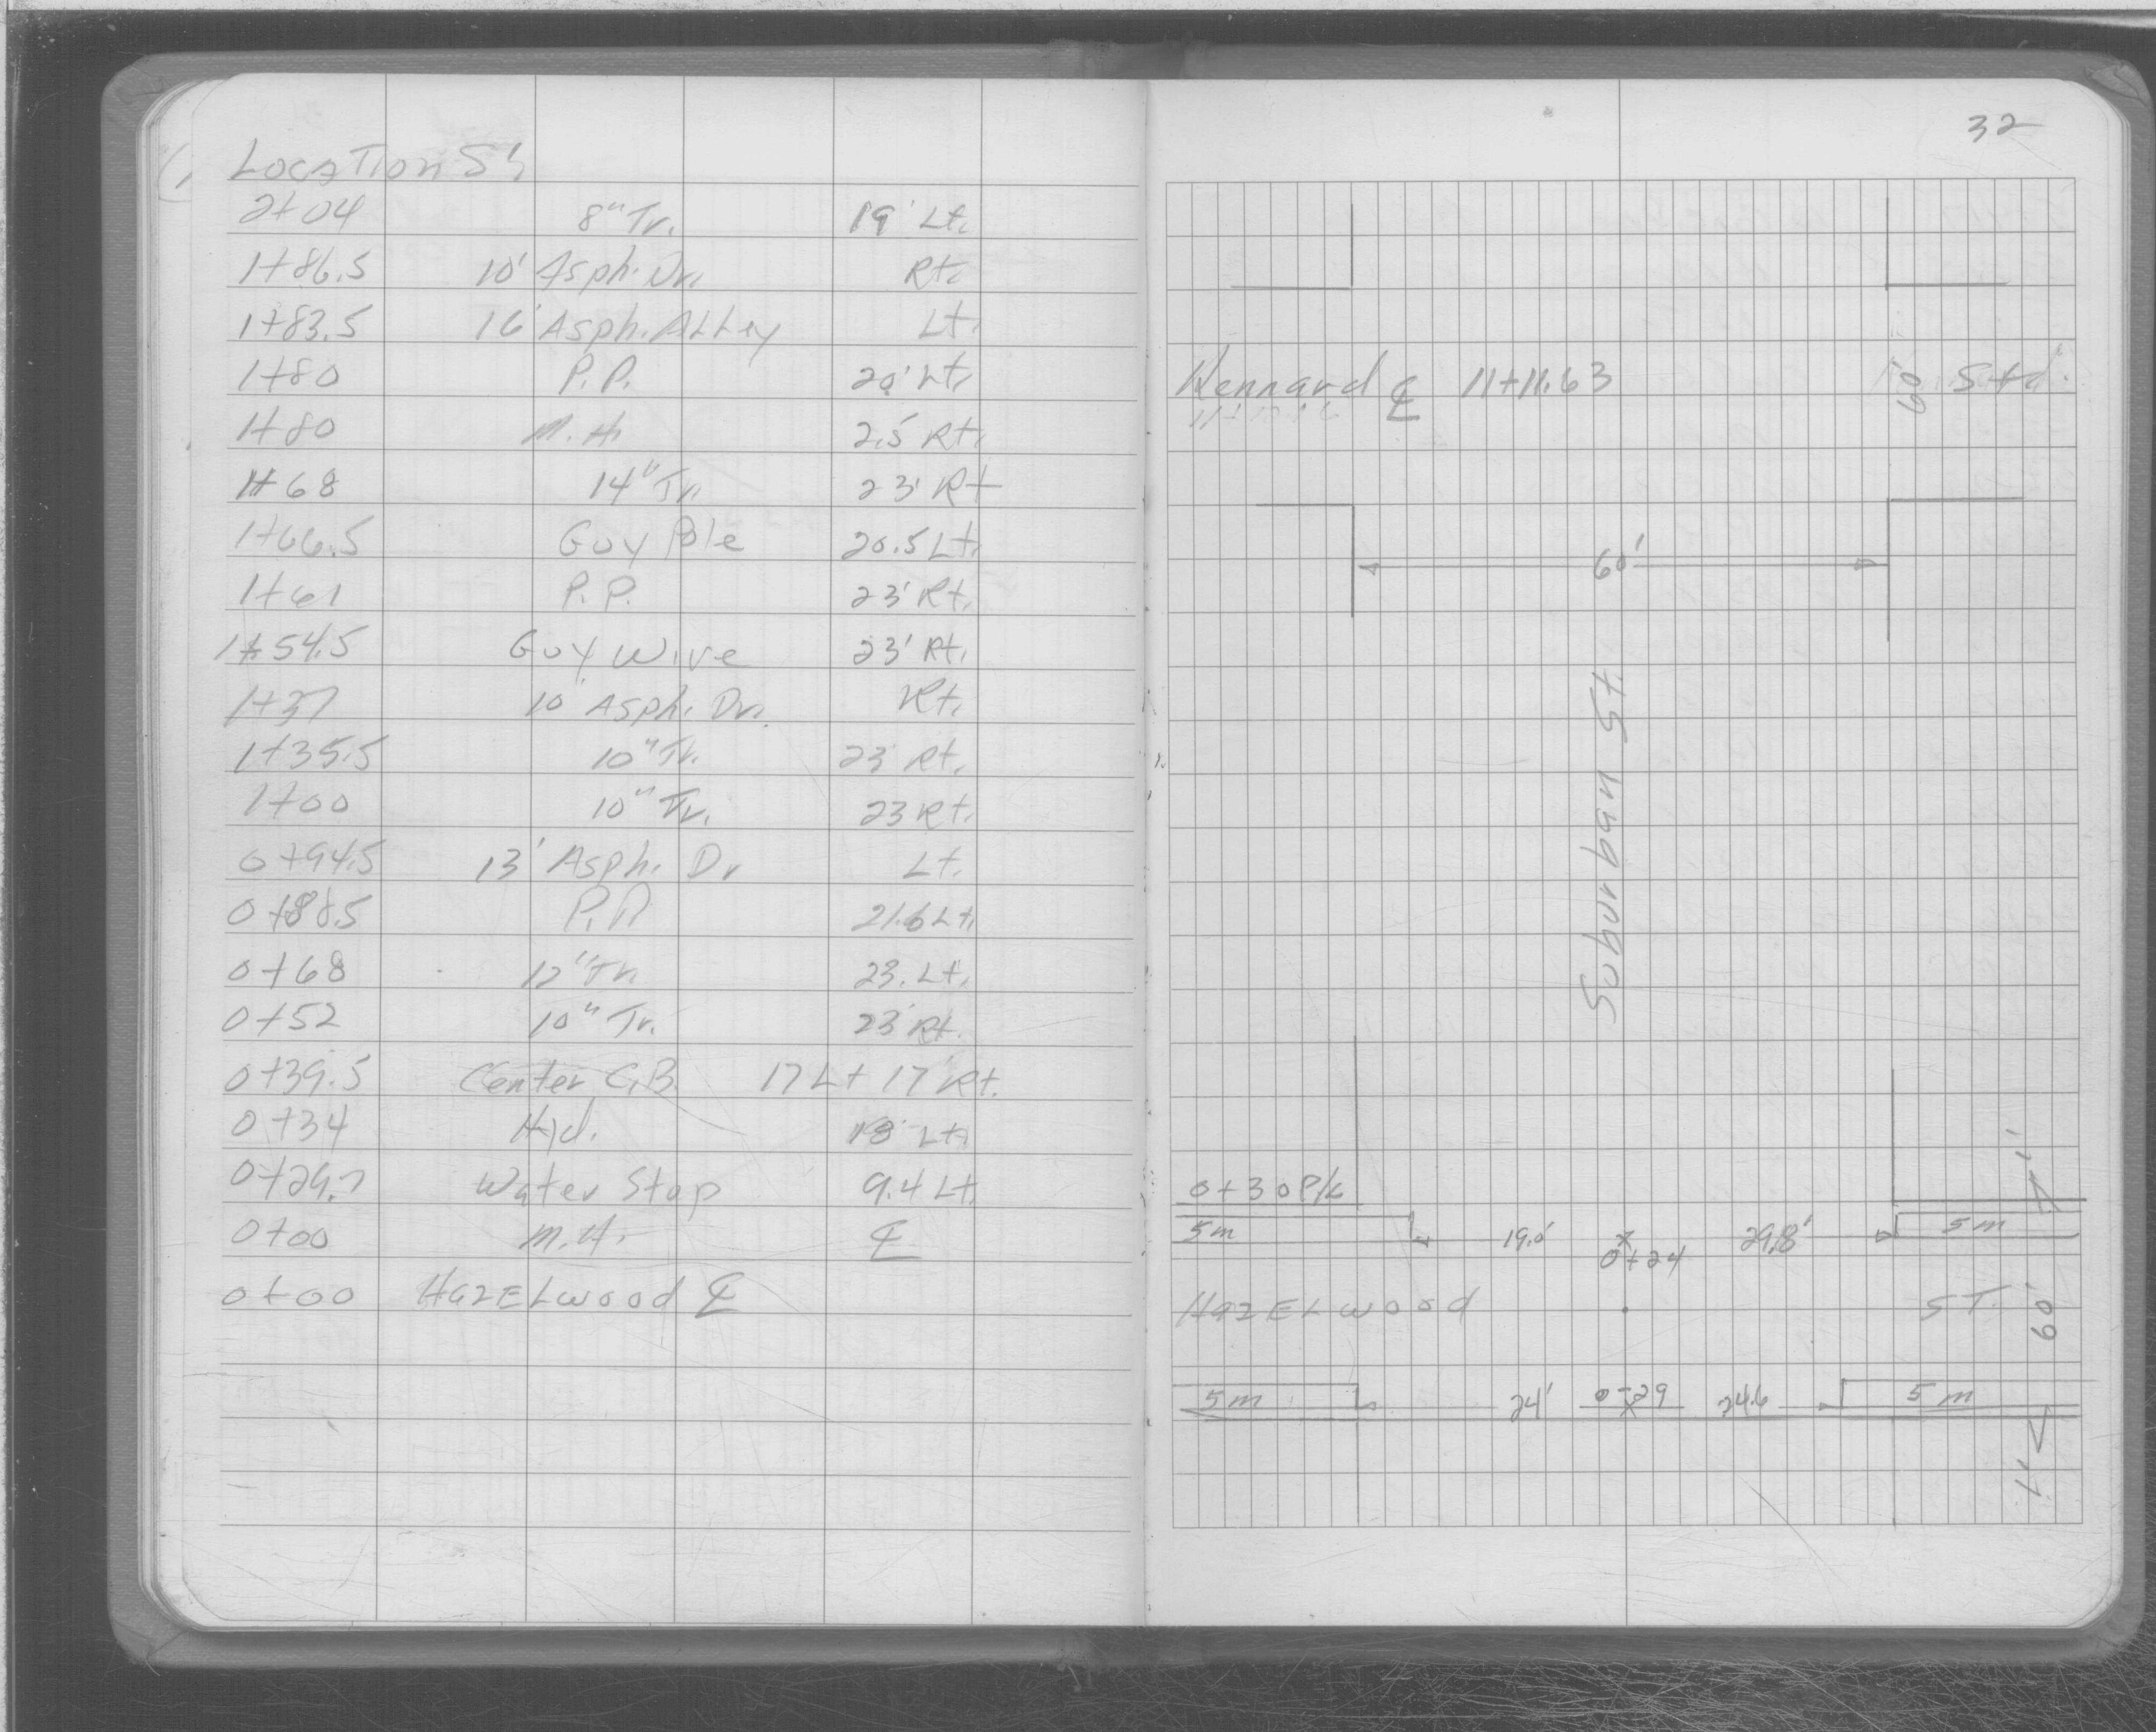 LocaTionS
2+04 8" Tr. 19' Lt.
1+86.5 10' Asph. Dr. Rt.
1+83.5 16' Asph. ALLey Lt.
1+80 P.P. 20' Lt.
1+80 M.H. 2.5 Rt.
1+68 14" Tr. 23' Rt
1+66.5 Guy Pole 20.5 Lt.
1+61 P.P. 23' Rt.
1+54.5 Guy Wire 23' Rt.
1+37 10' Asph. Dr. Rt.
1+35.5 10" Tr. 23' Rt.
1+00 10" Tr. 23 Rt.
0+94.5 13' Asph. Dr Lt.
0+88.5 P.P. 21.6 Lt.
0+68 12" Tr. 23. Lt.
0+52 10" Tr. 23' Rt.
0+39.5 Center C.B. 17 Lt 17' Rt.
0+34 Hyd. 18' Lt.
0+29.7 Water Stop 9.4 Lt.
0+00 M.H. ℄
0+00 HazELwood ℄
32
Kennard ℄ 11+11.63 60' Std.
60'
Suburban St.
0+30 P/L
5m 19.0' 0+24 29.8' 5m
HazELwood ST. 60'
5m 24' 0-29 24.6 5m